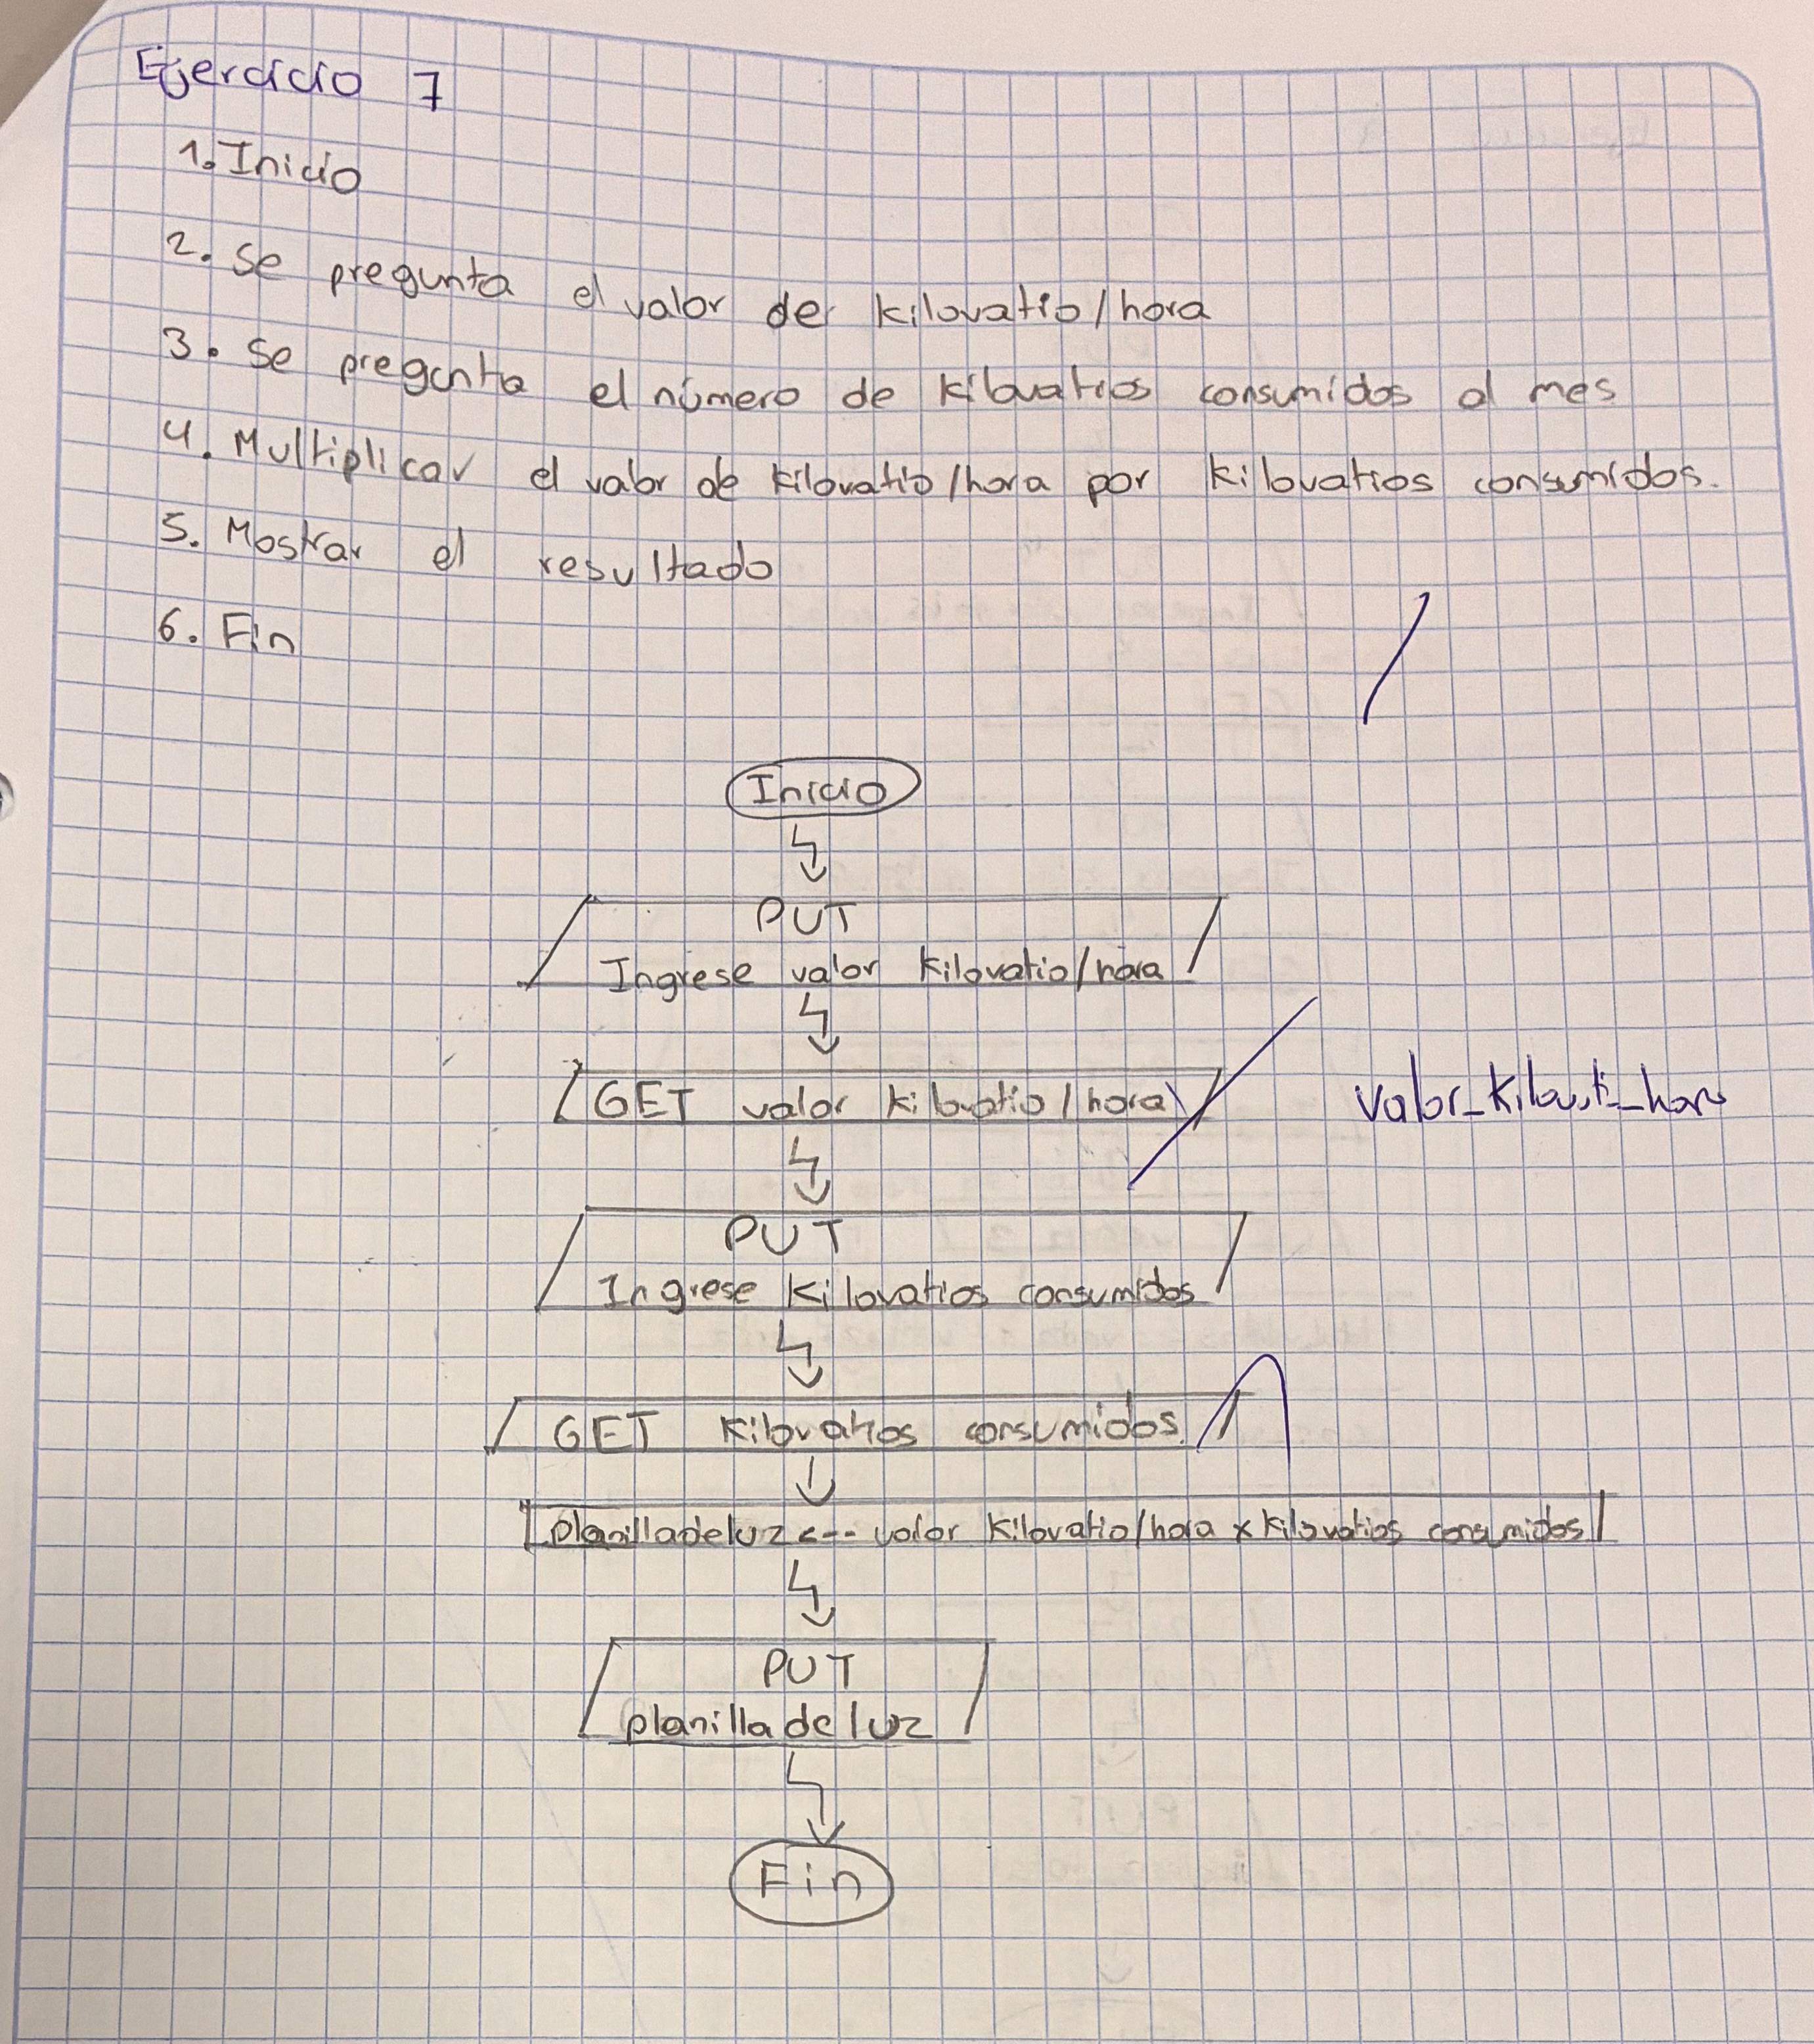 Ejercicio 7
1. Inicio
2. Se pregunta el valor de kilovatio/hora
3. Se pregunta el número de kilovatios consumidos al mes
4. Multiplicar el valor de kilovatio/hora por kilovatios consumidos.
5. Mostrar el resultado
6. Fin
Inicio
PUT
Ingrese valor kilovatio/hora
GET valor kilovatio/hora
PUT
Ingrese kilovatios consumidos
GET kilovatios consumidos
planilladeluz <-- valor kilovatio/hora x kilovatios consumidos
PUT
planilla de luz
Fin